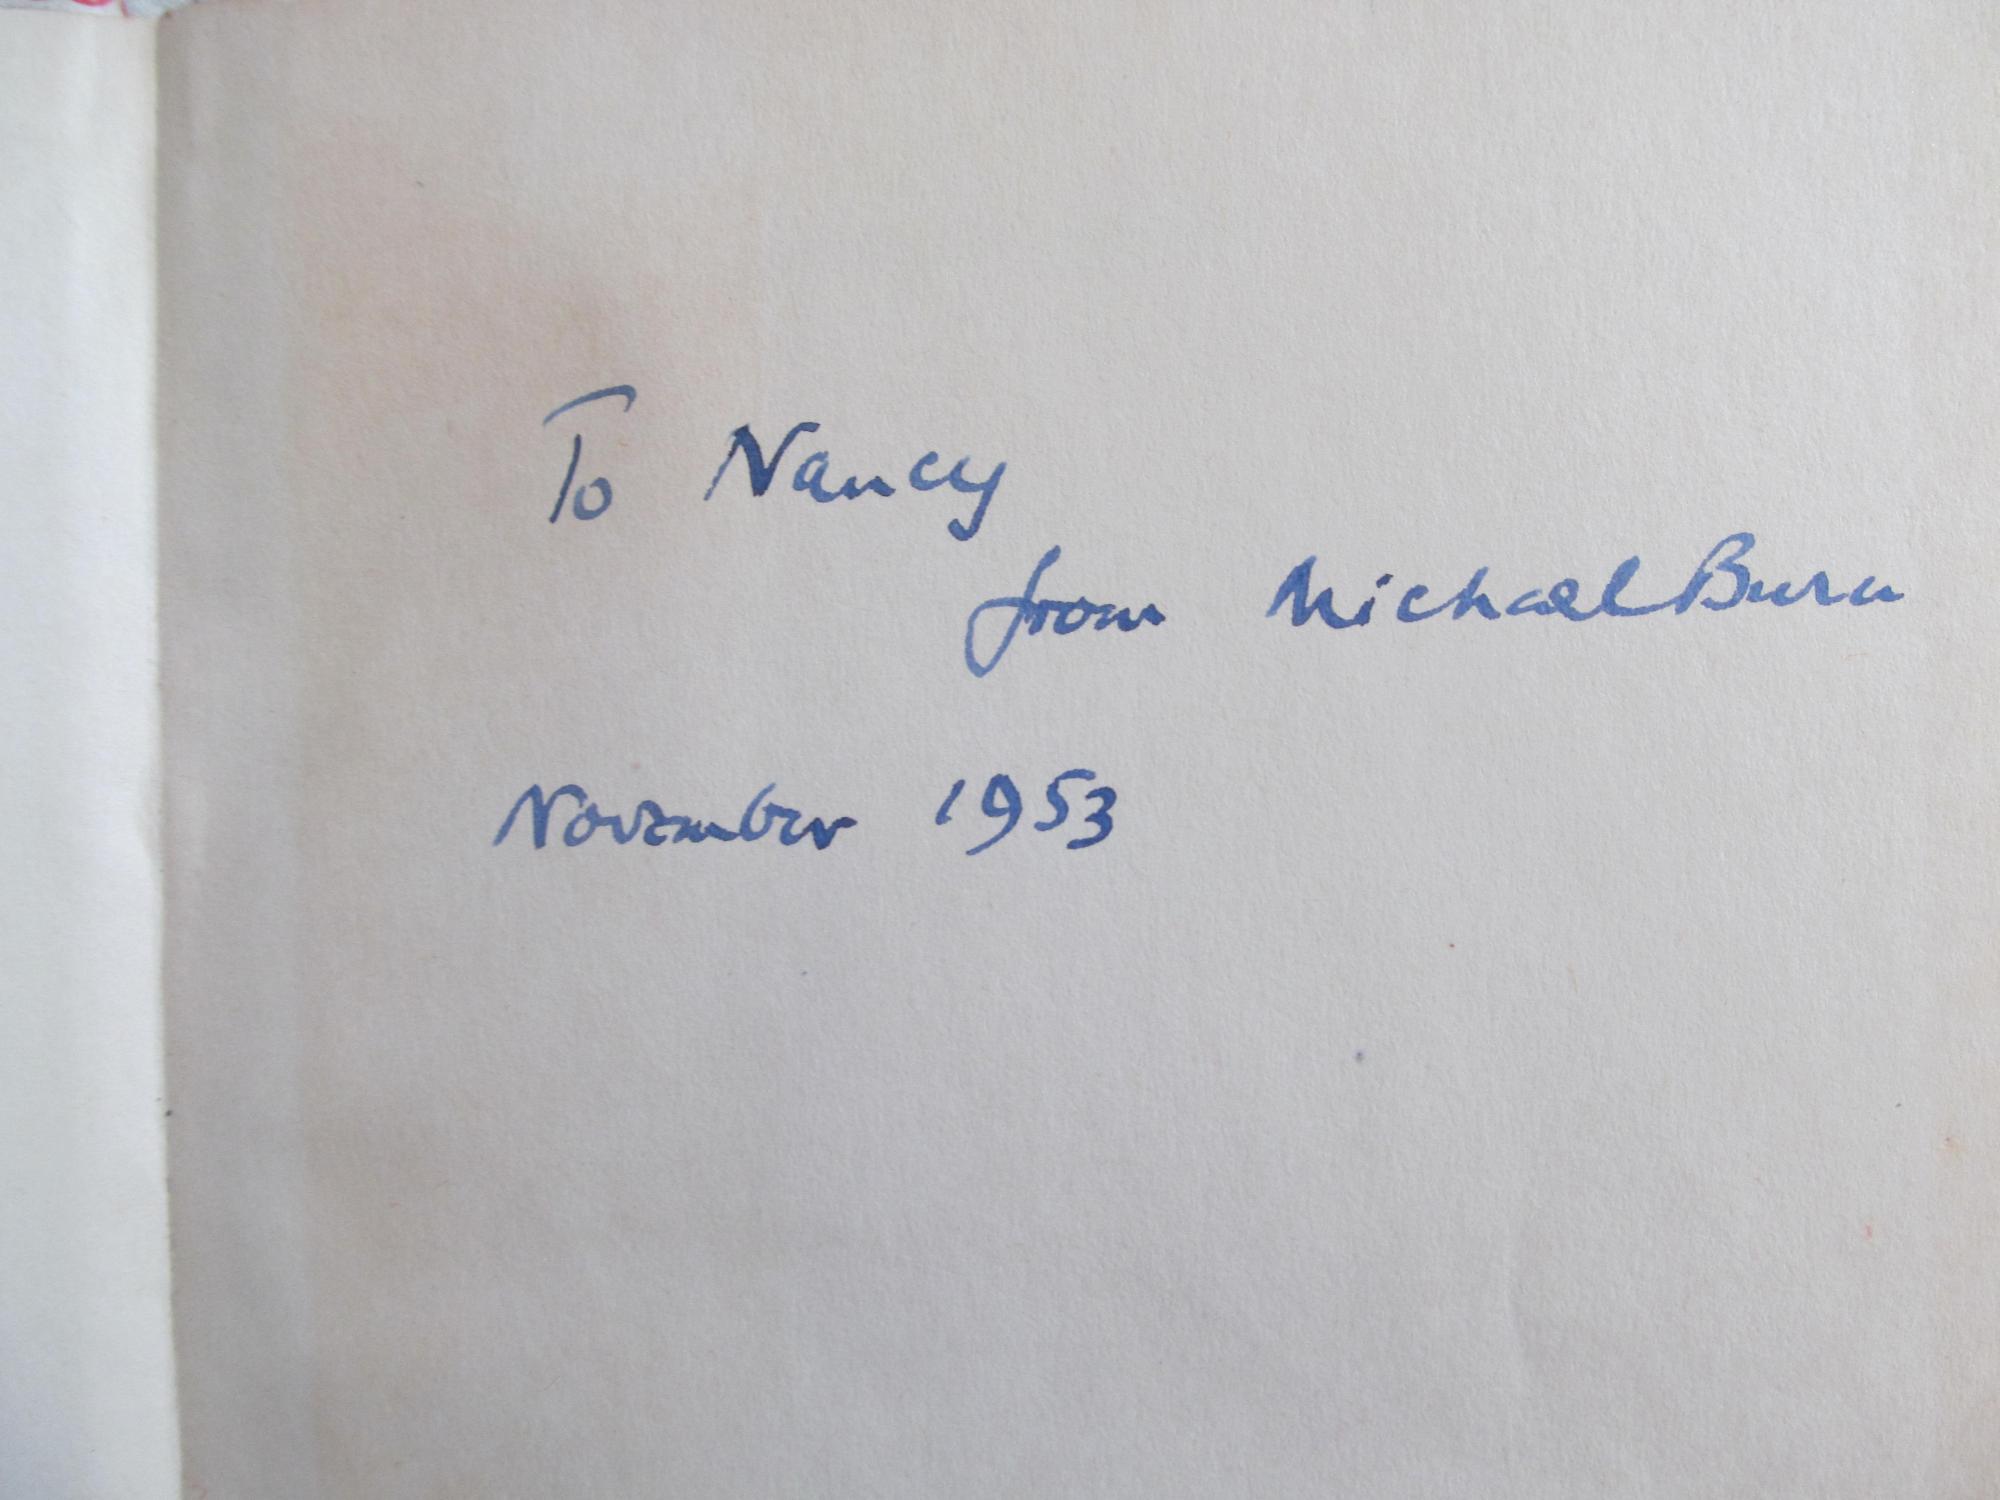 To Nancy
from Michael Burn
November 1953